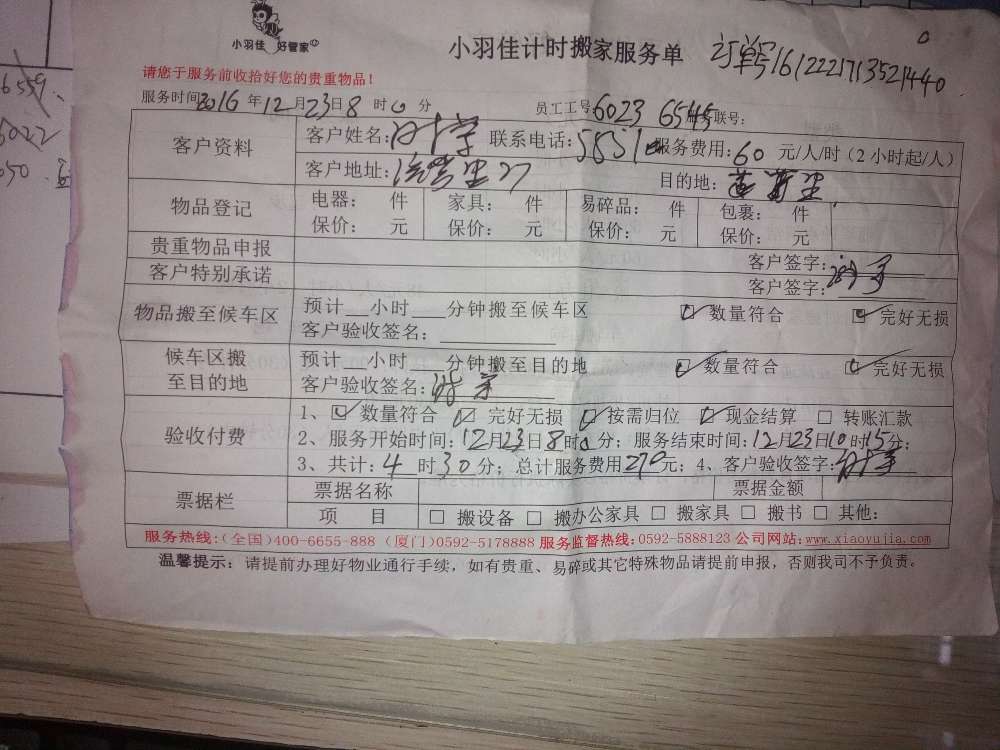 小羽佳 好管家
小羽佳计时搬家服务单 订单号1612221713521440
请您于服务前收拾好您的贵重物品！
服务时间2016年12月23日8时0分 员工工号:6023 6545 联号:
客户资料 客户姓名: 联系电话:5831 服务费用:60元/人/时（2小时起/人）
客户地址: 目的地:
物品登记 电器: 件 家具: 件 易碎品: 件 包裹: 件
保价: 元 保价: 元 保价: 元 保价: 元
贵重物品申报 客户签字:
客户特别承诺 客户签字:
物品搬至候车区 预计__小时___分钟搬至候车区 数量符合 完好无损
客户验收签名:
候车区搬至目的地 预计__小时___分钟搬至目的地 数量符合 完好无损
客户验收签名:
验收付费 1、数量符合 完好无损 按需归位 现金结算 □ 转账汇款
2、服务开始时间:12月23日8时0分; 服务结束时间:12月23日10时15分;
3、共计:4时30分; 总计服务费用270元; 4、客户验收签字:
票据栏 票据名称 票据金额
项 目 □ 搬设备 □ 搬办公家具 □ 搬家具 □ 搬书 □ 其他:
服务热线:(全国)400-6655-888 (厦门)0592-5178888 服务监督热线:0592-5888123 公司网站:www.xiaoyujia.com
温馨提示: 请提前办理好物业通行手续，如有贵重、易碎或其它特殊物品请提前申报，否则我司不予负责。